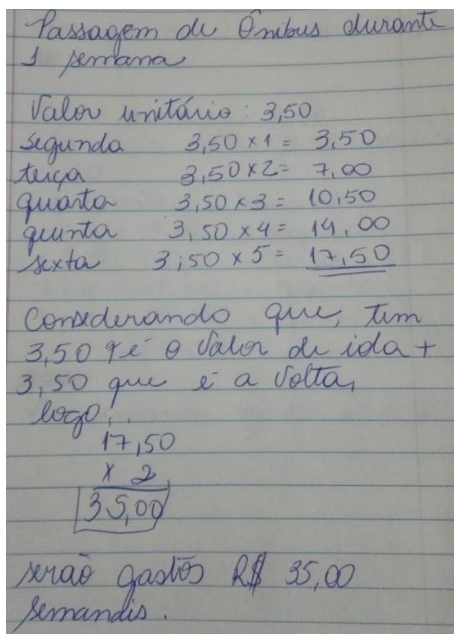 Passagem de Ônibus durante
1 semana
Valor unitário: 3,50
segunda 3,50 x 1 = 3,50
terça 3,50 x 2 = 7,00
quarta 3,50 x 3 = 10,50
quinta 3,50 x 4 = 14,00
sexta 3,50 x 5 = 17,50
Considerando que, tem
3,50 q é o valor de ida +
3,50 que é a volta,
logo...
17,50
x 2
35,00
serão gastos R$ 35,00
semanais.